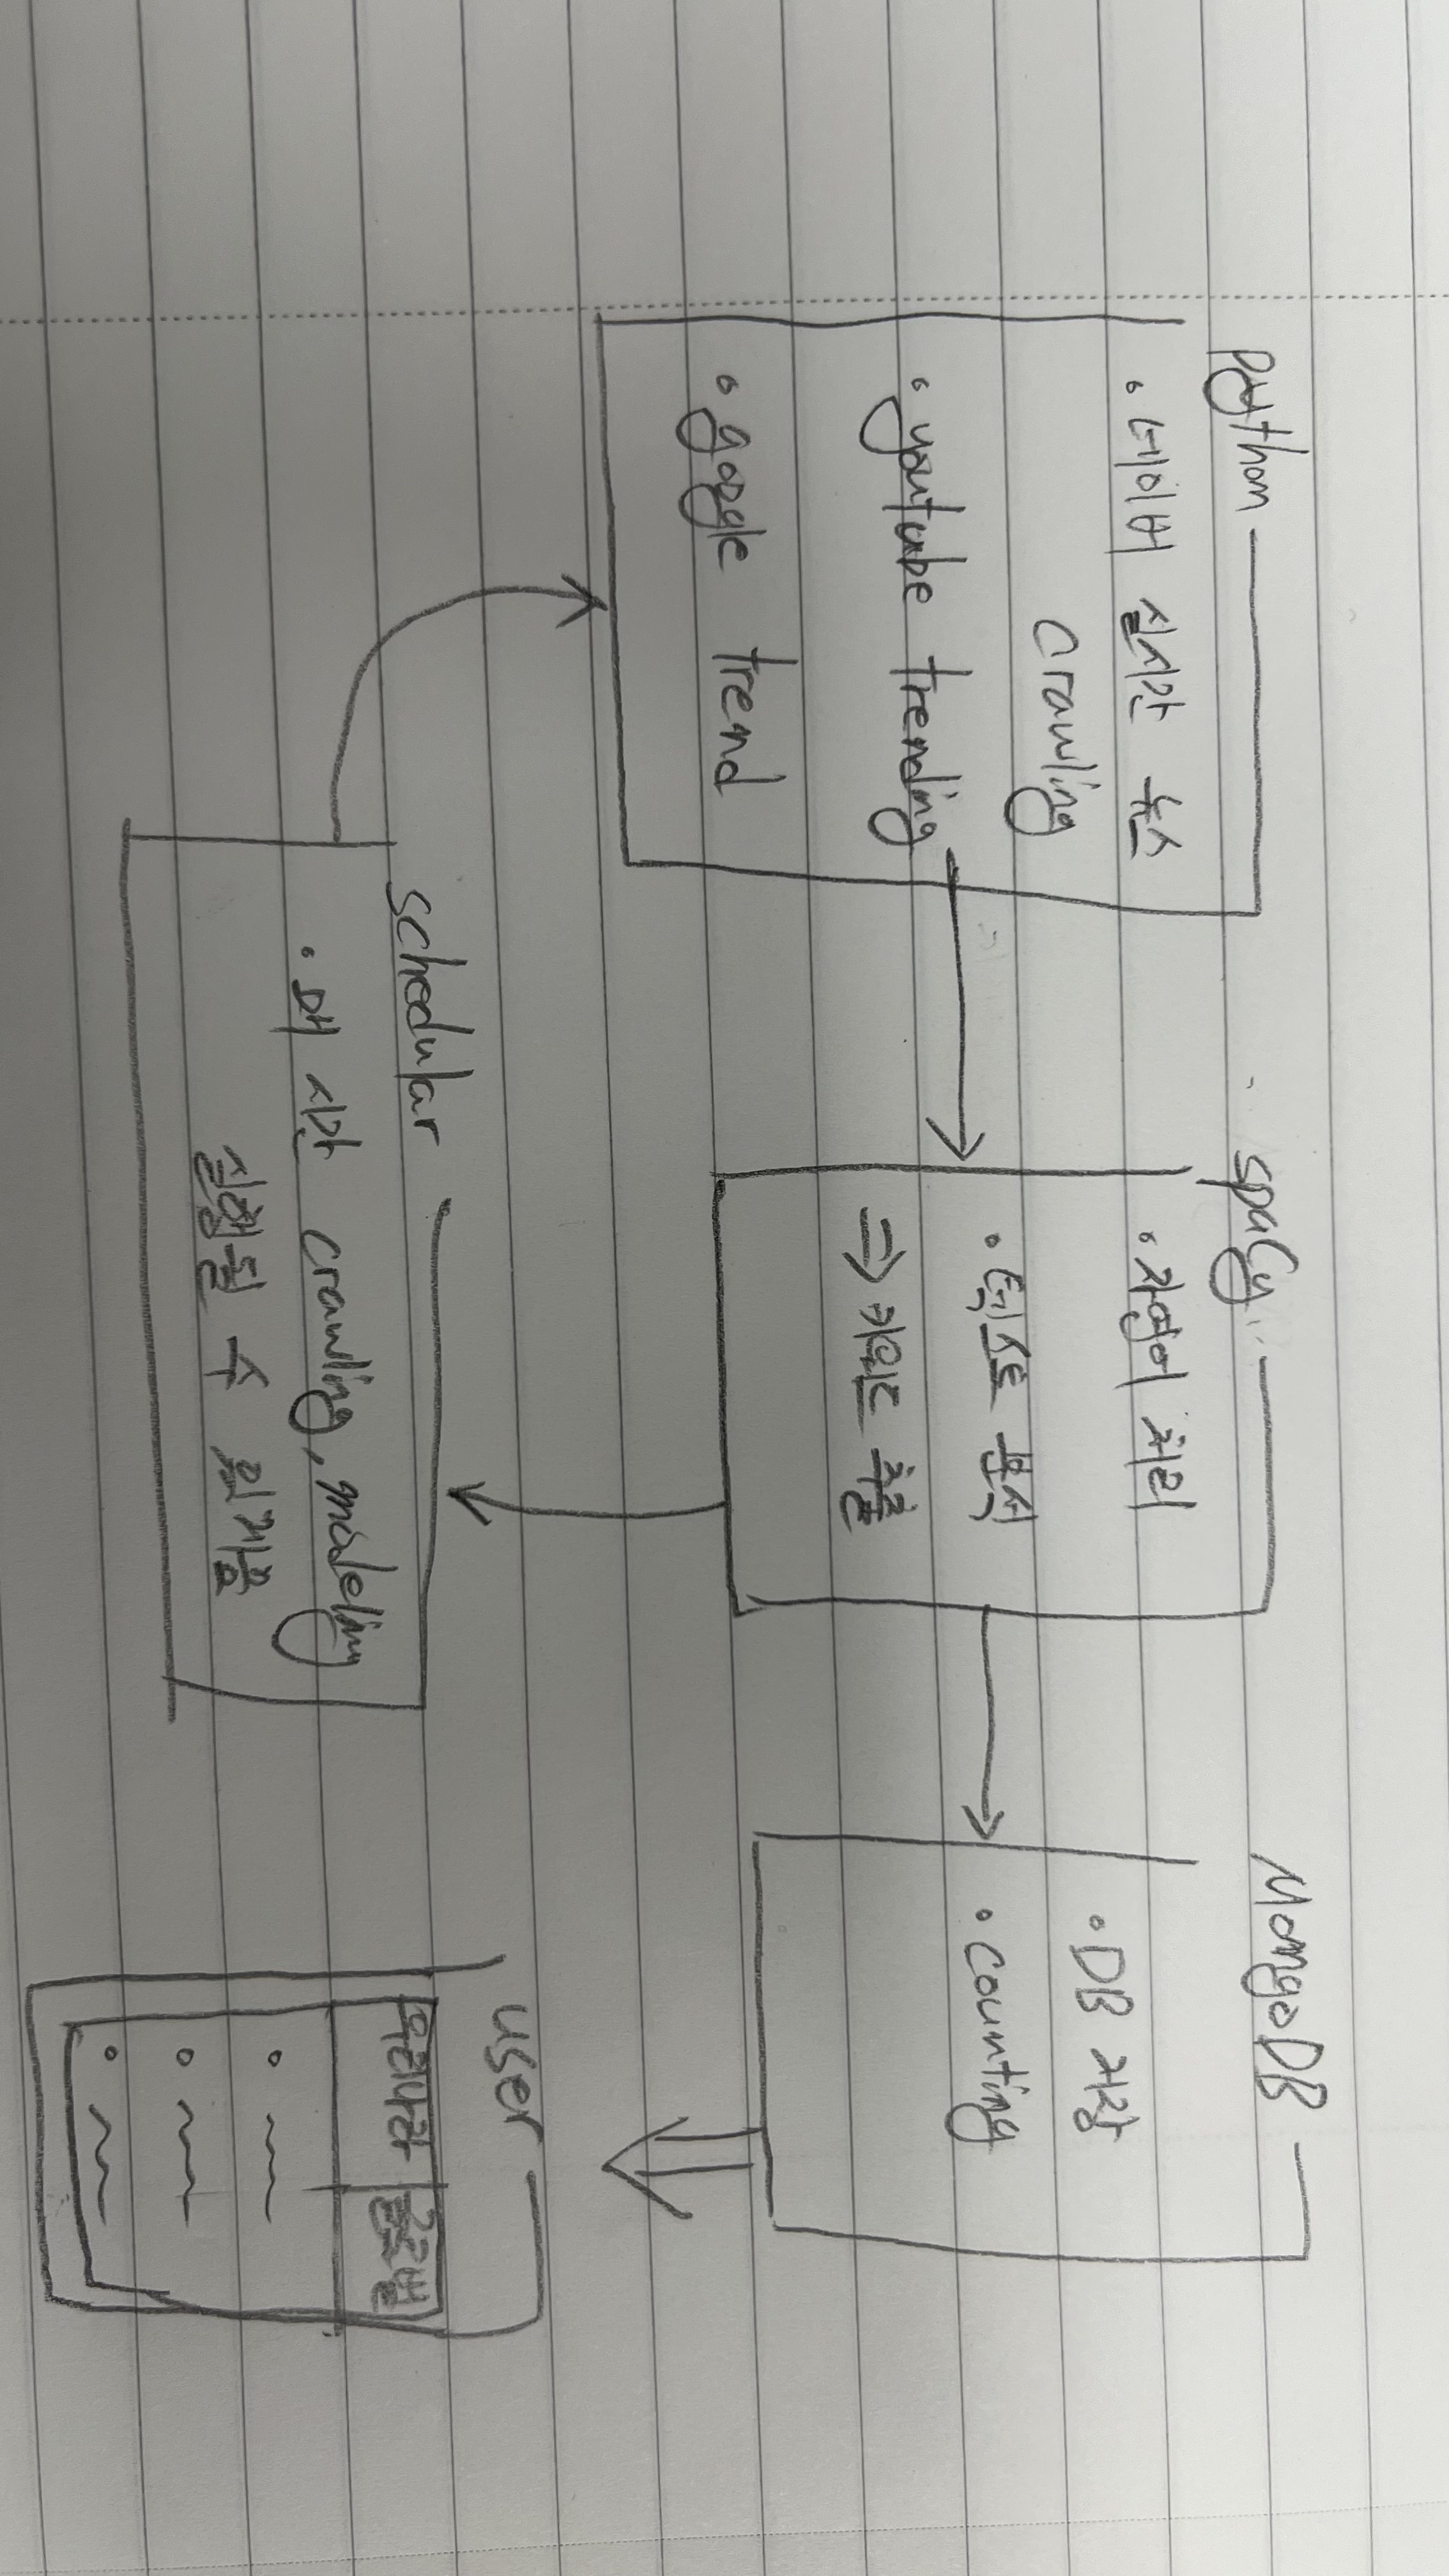 python
• 네이버 실시간 뉴스
crawling
• youtube trending
• google trend
spaCy
• 자연어 처리
• 텍스트 분석
⇒ 키워드 추출
MongoDB
• DB 저장
• counting
schedular
• 매 시간 crawling, modeling
실행될 수 있게끔
user
우리나라 글로벌